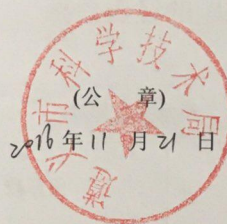 遵义市科学技术局
(公 章)
2016年11月21日